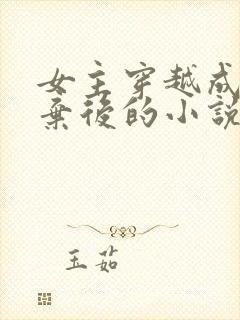 女主穿越成
棄後的小説
玉茹